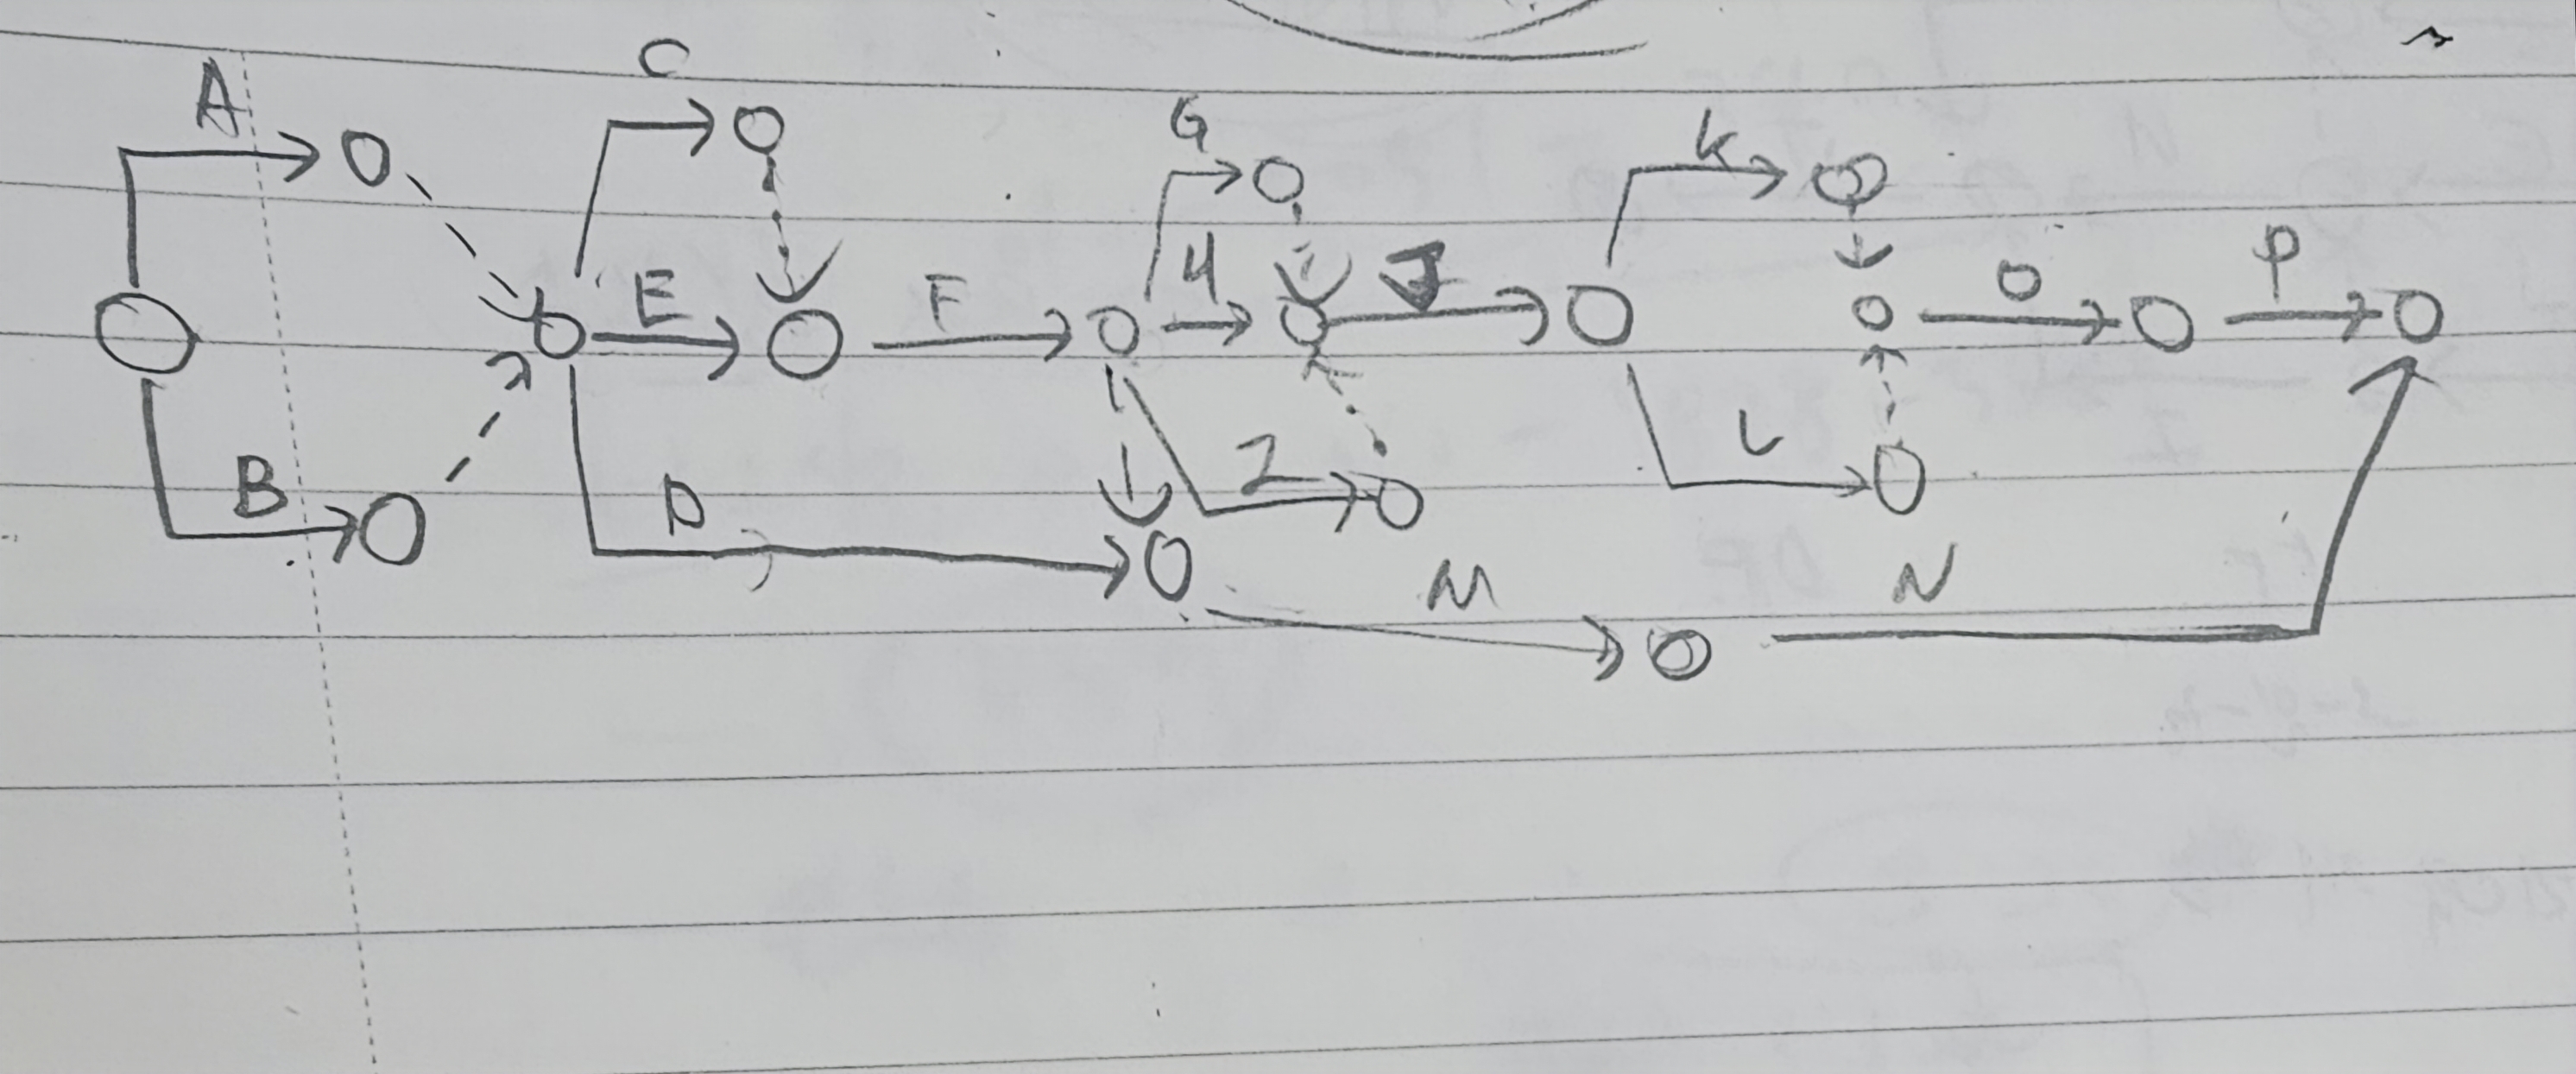 A
C
G
K
E
F
H
J
O
P
B
D
I
L
M
N